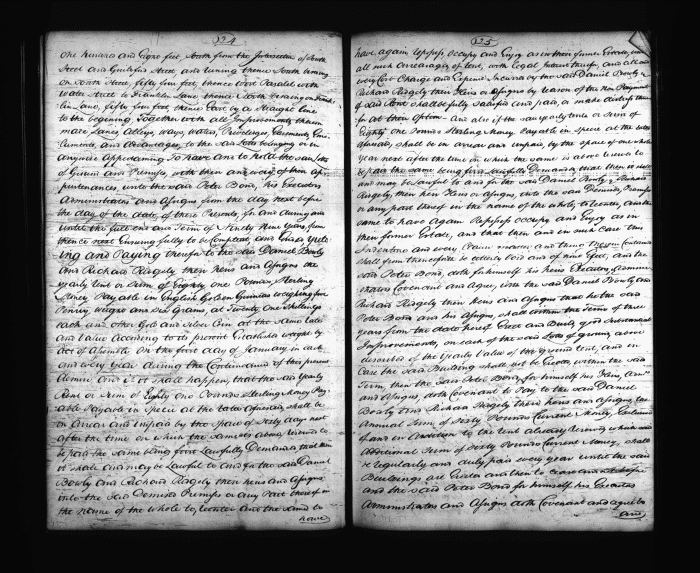 324
one hundred and Eight feet, South from the Intersection of South
Street and Guilford Street, and runing thence South bounding
on South Street, fifty four feet, thence West Paralel with
Water Street to Franklin Lane thence North bounding on Frank
lin Lane, fifty four feet, thence East by a Straight line
to the begining. Together with all Improvements therein
made Lanes, Alleys, ways, Waters, Priviledges, Easements, Emo
luments, and Advantages, to the said Lotts belonging or in
Anywise Appertaining To have and to hold the said Lotts
of Ground and Premises, with them and every of their ap
purtenances, unto the said Peter Bond, his Executors
Administrators and Assigns from the day next before
the day of the date of these Presents, for and during and
untill the full end and Term of Ninety Nine Years, from
thence next Ensuing fully to be Compleat, and Ended Yield
ing and Paying therefor to the said Daniel Bowly
and Richard Ridgely their heirs and Assigns the
Yearly Rent or Sum of Eighty one Pounds, Sterling
Money Payable in English Golden Guineas weighing five
Penny weight and Six Grains, at Twenty One Shillings
each and other Gold and Silver Coin at the same rate
and Value According to its present Established weight by
Act of Assembly On the first day of January in each
and every Year during the Continuance of this present
Demise And if it shall happen, that the said Yearly
Rent or Sum of Eighty One Pounds Sterling Money Pay
able Payable in Specie at the rates Aforesaid, shall be
in Arrear and unpaid by the Space of Sixty days next
after the time on which the same is above reserved to
be paid the same being first Lawfully Demanded that then
it shall and may be Lawful to and for the said Daniel
Bowly and Richard Ridgely their heirs and Assigns
into the said Demised Premises or any Part thereof in
the name of the whole to reenter and the same to
have
325
have again Repossess Occupy and Enjoy as in their former Estate, untill
all such Arrearages of rent, with Legal Interest thereon, and all and
every Cost Charge and Expence Incurred by the said Daniel Bowly &
Richard Ridgely their Heirs or Assigns by reason of the Non Payment
of said Rent shall be fully Satisfied and paid, or made distress there
for at their Option. And also if the said Yearly Rent or Sum of
Eighty one Pounds Sterling Money Payable in specie at the rates
Aforesaid, shall be in arrear and unpaid, by the space of one whole
Year next after the time on which the same is above reserved to
be paid the same being first Lawfully Demanded that then it shall
and may be Lawful to and for the said Daniel Bowly & Richard
Ridgely, their heirs Heirs or Assigns, into the said Demised Premises
or any part thereof in the name of the whole, to reenter, and the
same to have again Repossess occupy and Enjoy as in
their former Estate, and that then and in such Case this
Indenture and every Clause matter and thing Therein Contained
shall from thenceforth be utterly Void and of none Effect, and the
said Peter Bond, doth for himself his heirs Executors Admini
strators Covenant and Agree, with the said Daniel Bowly and
Richard Ridgely their heirs and Assigns that he the said
Peter Bond and his Assigns, shall within the Term of three
years from the date hereof Erect and Build, good Substantial
Improvements, on each of the said Lotts of ground above
described of the Yearly Value of the ground Rent, and in
Case the said Building shall not be Erected within the said
Term, then the said Peter Bond for himself his Heirs, Admrs
and Assigns, doth Covenant to Pay to the said Daniel
Bowly and Richard Ridgely their heirs and Assigns the
Annual Sum of Sixty Pounds Current Money, Exclusive
of and in Addition to the Rent already reserved which said
Additional Sum of Sixty Pounds Current Money, shall
be regularly and duly paid every year untill the said
Buildings are Erected and then to cease and
and the said Peter Bond for himself his Executors
Administrators and Assigns doth Covenant and agree to
and